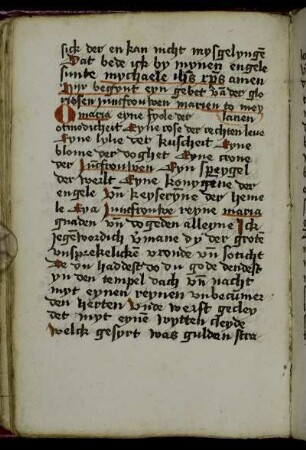 sick der en kan nicht mysgelynge
Dat bede ick by mynen engele
sunte mychaele ihs xps amen
Hir begynt eyn gebet van der glo
riosen iunffrouwen marien to mey
O maria eyne scole der lanen
otmodicheit Eyne rose der rechten leue
Eyne lylie der kuscheit Eyne
blome der doghet Eyn crone
der Junffrouwen Eyn speygel
der werlt Eyne konygene der
engele vn keyseryne der heme
le Eya Junffrouwe reyne maria
gnaden vn dogeden alleyne Ick
iegewordich vmane dy der grote
vnsprekeliken vroude vn soticht
De du haddest do du gode dendest
yn den tempel dach vn nacht
myt eynen reynen vnbecumer
den herten Vnde werst gecley
det myt eyne wytten cleyde
Welck gesyrt was gulden stra